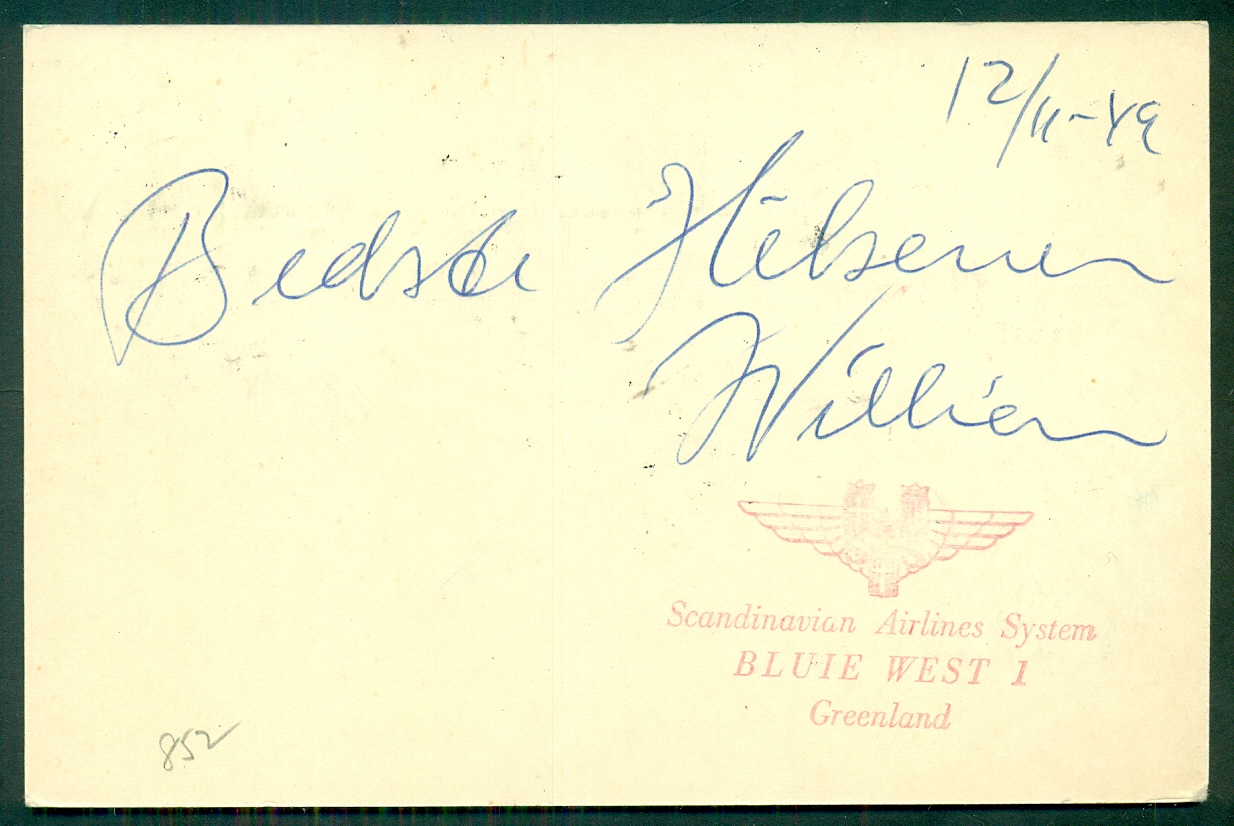 12/11-49
Bedste Hilsener
William
Scandinavian Airlines System
BLUIE WEST 1
Greenland
852